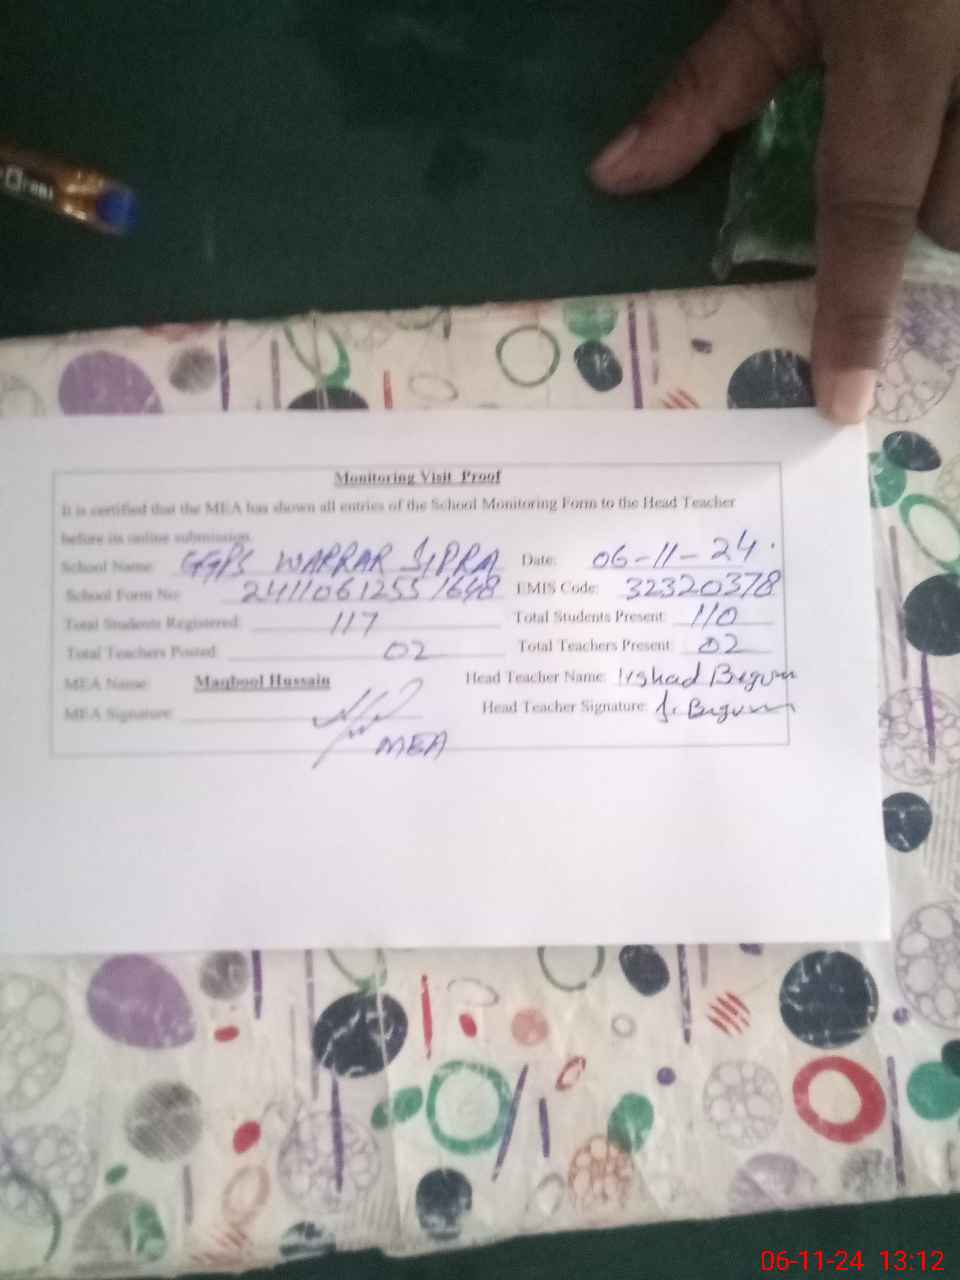 Monitoring Visit Proof
It is certified that the MEA has shown all entries of the School Monitoring Form to the Head Teacher
before its online submission.
School Name: GGPS WARRAR SIPRA Date: 06-11-24.
School Form No: 2411061255 1648 EMIS Code: 32320378
Total Students Registered: 117 Total Students Present: 110
Total Teachers Posted: 02 Total Teachers Present: 02
MEA Name: Maqbool Hussain Head Teacher Name: Irshad Begum
MEA Signature: Head Teacher Signature: I. Begum
MEA
06-11-24 13:12